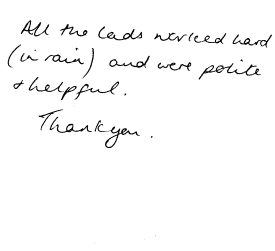 All the lads worked hard
(in rain) and were polite
+ helpful.
Thank you.